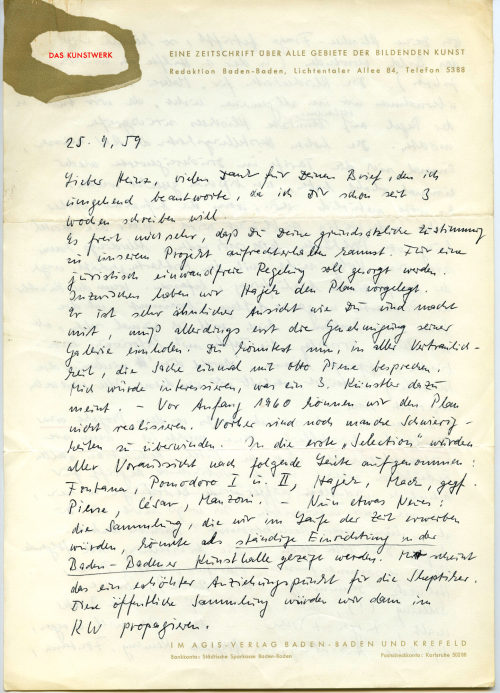 DAS KUNSTWERK
EINE ZEITSCHRIFT ÜBER ALLE GEBIETE DER BILDENDEN KUNST
Redaktion Baden-Baden, Lichtentaler Allee 84, Telefon 5388
25. 9. 59
Lieber Heinz, vielen Dank für Deinen Brief, den ich
umgehend beantworte, da ich Dir schon seit 3
Wochen schreiben will.
Es freut mich sehr, daß Du Deine grundsätzliche Zustimmung
zu unserem Projekt aufrechterhalten kannst. Für eine
juristisch einwandfreie Regelung soll gesorgt werden.
Inzwischen haben wir Hajek den Plan vorgelegt.
Er ist sehr ähnlicher Ansicht wie Du und macht
mit, muß allerdings erst die Genehmigung seiner
Galerie einholen. Du könntest nun, in aller Vertraulich-
keit, die Sache einmal mit Otto Piene besprechen.
Mich würde interessieren, was ein 3. Künstler dazu
meint. – Vor Anfang 1960 können wir den Plan
nicht realisieren. Vorher sind noch manche Schwierig-
keiten zu überwinden. In die erste „Selection" würden
aller Voraussicht nach folgende Leute aufgenommen:
Fontana, Pomodoro I u. II, Hajek, Mack, ggf.
Piene, César, Manzoni. – Nun etwas Neues:
die Sammlung, die wir im Laufe der Zeit erwerben
würden, könnte als ständige Einrichtung in der
Baden-Badener Kunsthalle gezeigt werden. Mir scheint
das ein erhöhter Anziehungspunkt für die Skeptiker.
Diese öffentliche Sammlung würden wir dann im
KW propagieren.
IM AGIS-VERLAG BADEN-BADEN UND KREFELD
Bankkonto: Städtische Sparkasse Baden-Baden Postscheckkonto: Karlsruhe 50288